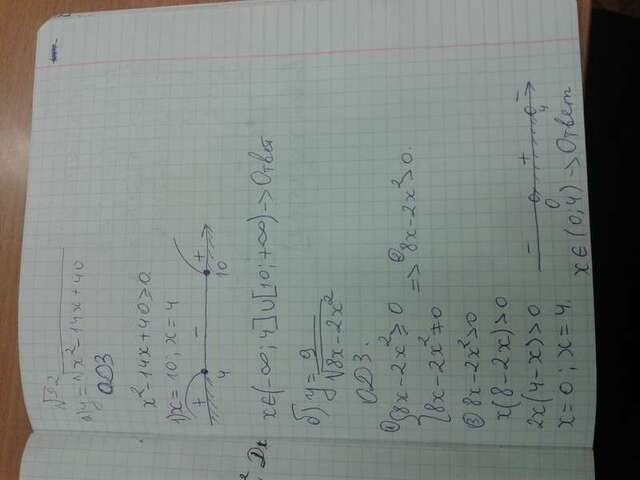 №2
а) y = √x² - 14x + 40
ОДЗ
x² - 14x + 40 ≥ 0
1) x = 10 ; x = 4
+ - +
4 10
x ∈ (-∞; 4] ∪ [10; +∞) -> Ответ
б) y = 9 / √8x - 2x²
ОДЗ.
① { 8x - 2x² ≥ 0
{ 8x - 2x² ≠ 0
=> ② 8x - 2x² > 0.
③ 8x - 2x² > 0
x(8 - 2x) > 0
2x(4 - x) > 0
x = 0 ; x = 4.
- + -
0 4
x ∈ (0; 4) -> Ответ